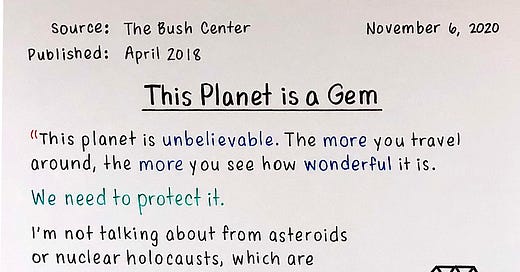 Source: The Bush Center November 6, 2020
Published: April 2018
This Planet is a Gem
"This planet is unbelievable. The more you travel
around, the more you see how wonderful it is.
We need to protect it.
I'm not talking about from asteroids
or nuclear holocausts, which are